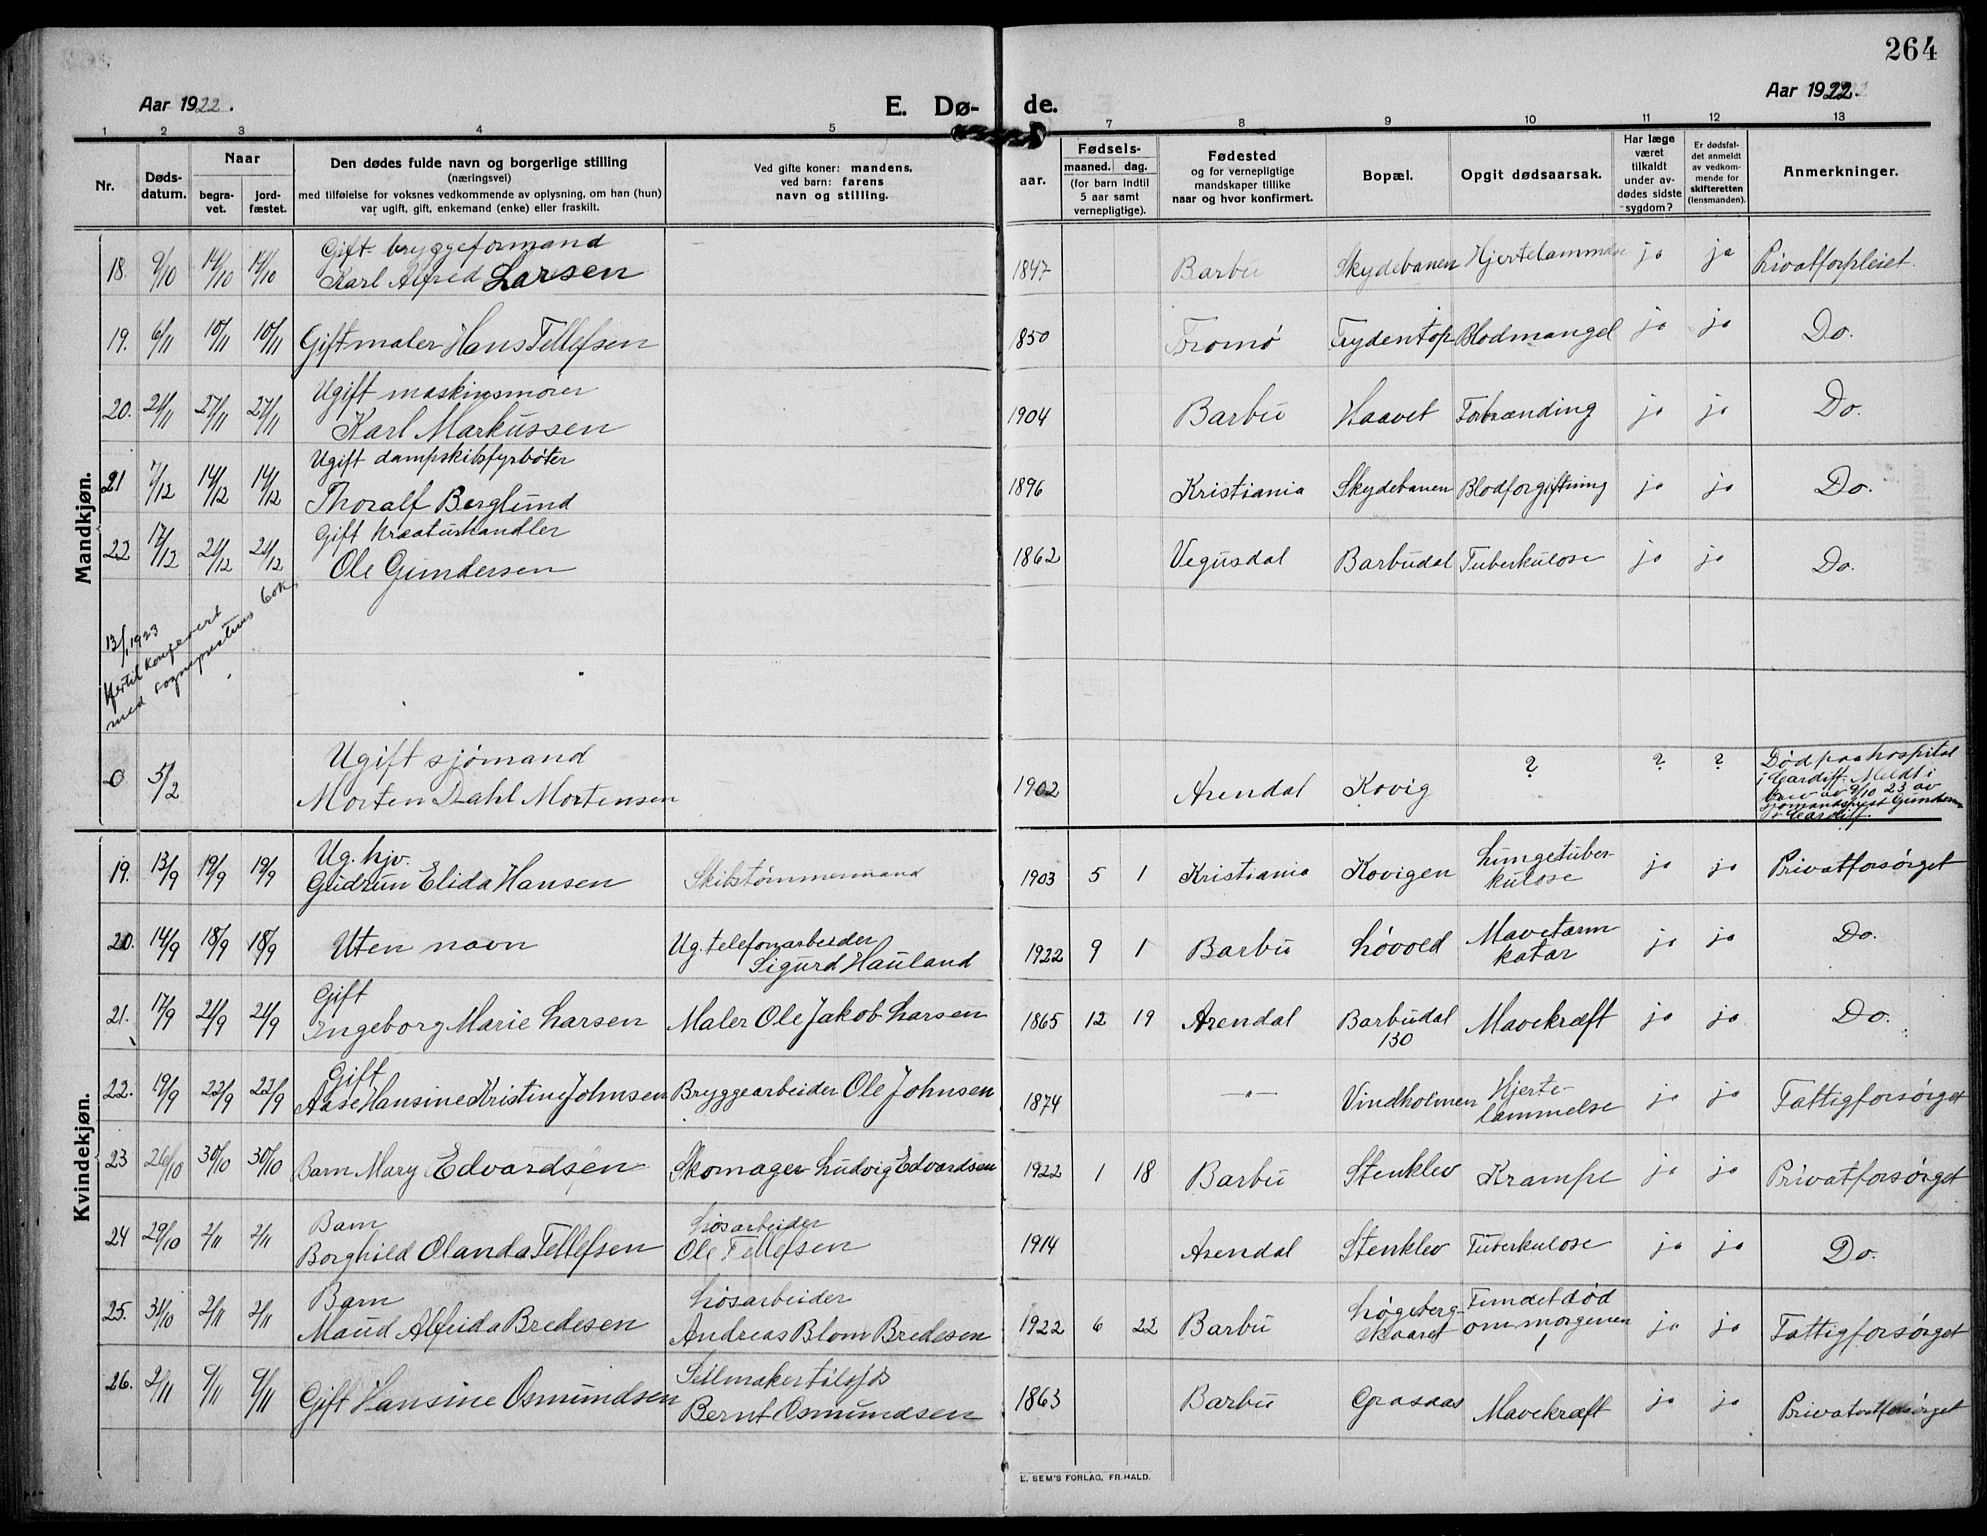 264
Aar 1922.
E. Dø- de.
Aar 1922.
1 2 3 4 5 7 8 9 10 11 12 13
Nr.
Døds-
datum.
Naar
begra-
vet.
jord-
fæstet.
Den dødes fulde navn og borgerlige stilling
(næringsvei)
med tilføielse for voksnes vedkommende av oplysning, om han (hun)
var ugift, gift, enkemand (enke) eller fraskilt.
Ved gifte koner: mandens,
ved barn: farens
navn og stilling.
aar.
Fødsels-
maaned. dag.
(for barn indtil
5 aar samt
vernepligtige).
Fødested
og for vernepligtige
mandskaper tillike
naar og hvor konfirmert.
Bopæl.
Opgit dødsaarsak.
Har læge
været
tilkaldt
under av-
dødes sidste
sygdom?
Er dødsfal-
det anmeldt
av vedkom-
mende for
skifteretten
(lensmanden).
Anmerkninger.
Mandkjøn.
Gift bryggeformand
18. 9/10 14/10 14/10 Karl Alfred Larsen 1847 Barbu Skydebanen Hjertelammelse ja ja Privatforpleiet.
19. 6/11 10/11 10/11 Gift maler Hans Tellefsen 1850 Tromø Frydentop Blodmangel ja ja Do.
Ugift maskinsmører
20. 21/11 27/11 27/11 Karl Markussen 1904 Barbu Haavet Forbrænding ja ja Do.
Ugift dampskibsfyrbøter
21 7/12 14/12 14/12 Thoralf Berglund 1896 Kristiania Skydebanen Blodforgiftning ja ja Do.
Gift Kreaturhandler
22 17/12 21/12 21/12 Ole Gundersen 1862 Vegusdal Barbudal Tuberkulose ja ja Do.
13/1 1923
Hertil konferert
med sogneprestens bok.
Ugift sjømand
0 5/2 Morten Dahl Mortensen 1902 Arendal Kovig ? ? ?
Død paa hospital
i Cardiff. Meldt i
brev av 9/10 23 av
sjømandsprest Gundersen
i Cardiff.
Kvindekjøn.
Ug. hjv.
19. 13/9 19/9 19/9 Gudrun Elida Hansen Skibstømmermand 1903 5 1 Kristiania Kovigen Lungetuber-
kulose ja ja Privatforsørget
20. 14/9 18/9 18/9 Uten navn Ug. telefonarbeider
Sigurd Hauland 1922 9 1 Barbu Løvold Mavetarm
katar ja ja Do.
Gift
21. 17/9 21/9 21/9 Ingeborg Marie Larsen Maler Ole Jakob Larsen 1865 12 19 Arendal Barbudal
130 Mavekræft ja ja Do.
Gift
22. 19/9 22/9 22/9 Aase Hansine Kristine Johnsen Bryggearbeider Ole Johnsen 1874 -"- Vindholmen Hjerte-
lammelse ja ja Fattigforsørget
23 26/10 30/10 30/10 Barn Mary Edvardsen Skomager Ludvig Edvardsen 1922 1 18 Barbu Stenklev Krampe ja ja Privatforsørget
Barn Løsarbeider
24 29/10 2/11 2/11 Borghild Olanda Tellefsen Ole Tellefsen 1914 Arendal Stenklev Tuberkulose ja ja Do.
Barn Løsarbeider
25. 31/10 2/11 2/11 Maud Alfeida Bredesen Andreas Blom Bredesen 1922 6 22 Barbu Løgeberg-
skaaret Fundet død
om morgenen ja ja Fattigforsørget
Seilmaker
26. 2/11 9/11 9/11 Gift Hansine Osmundsen Bernt Osmundsen 1863 Barbu Graasaas Mavekræft ja ja Privatforsørget
E. SEM'S FORLAG, FR.HALD.